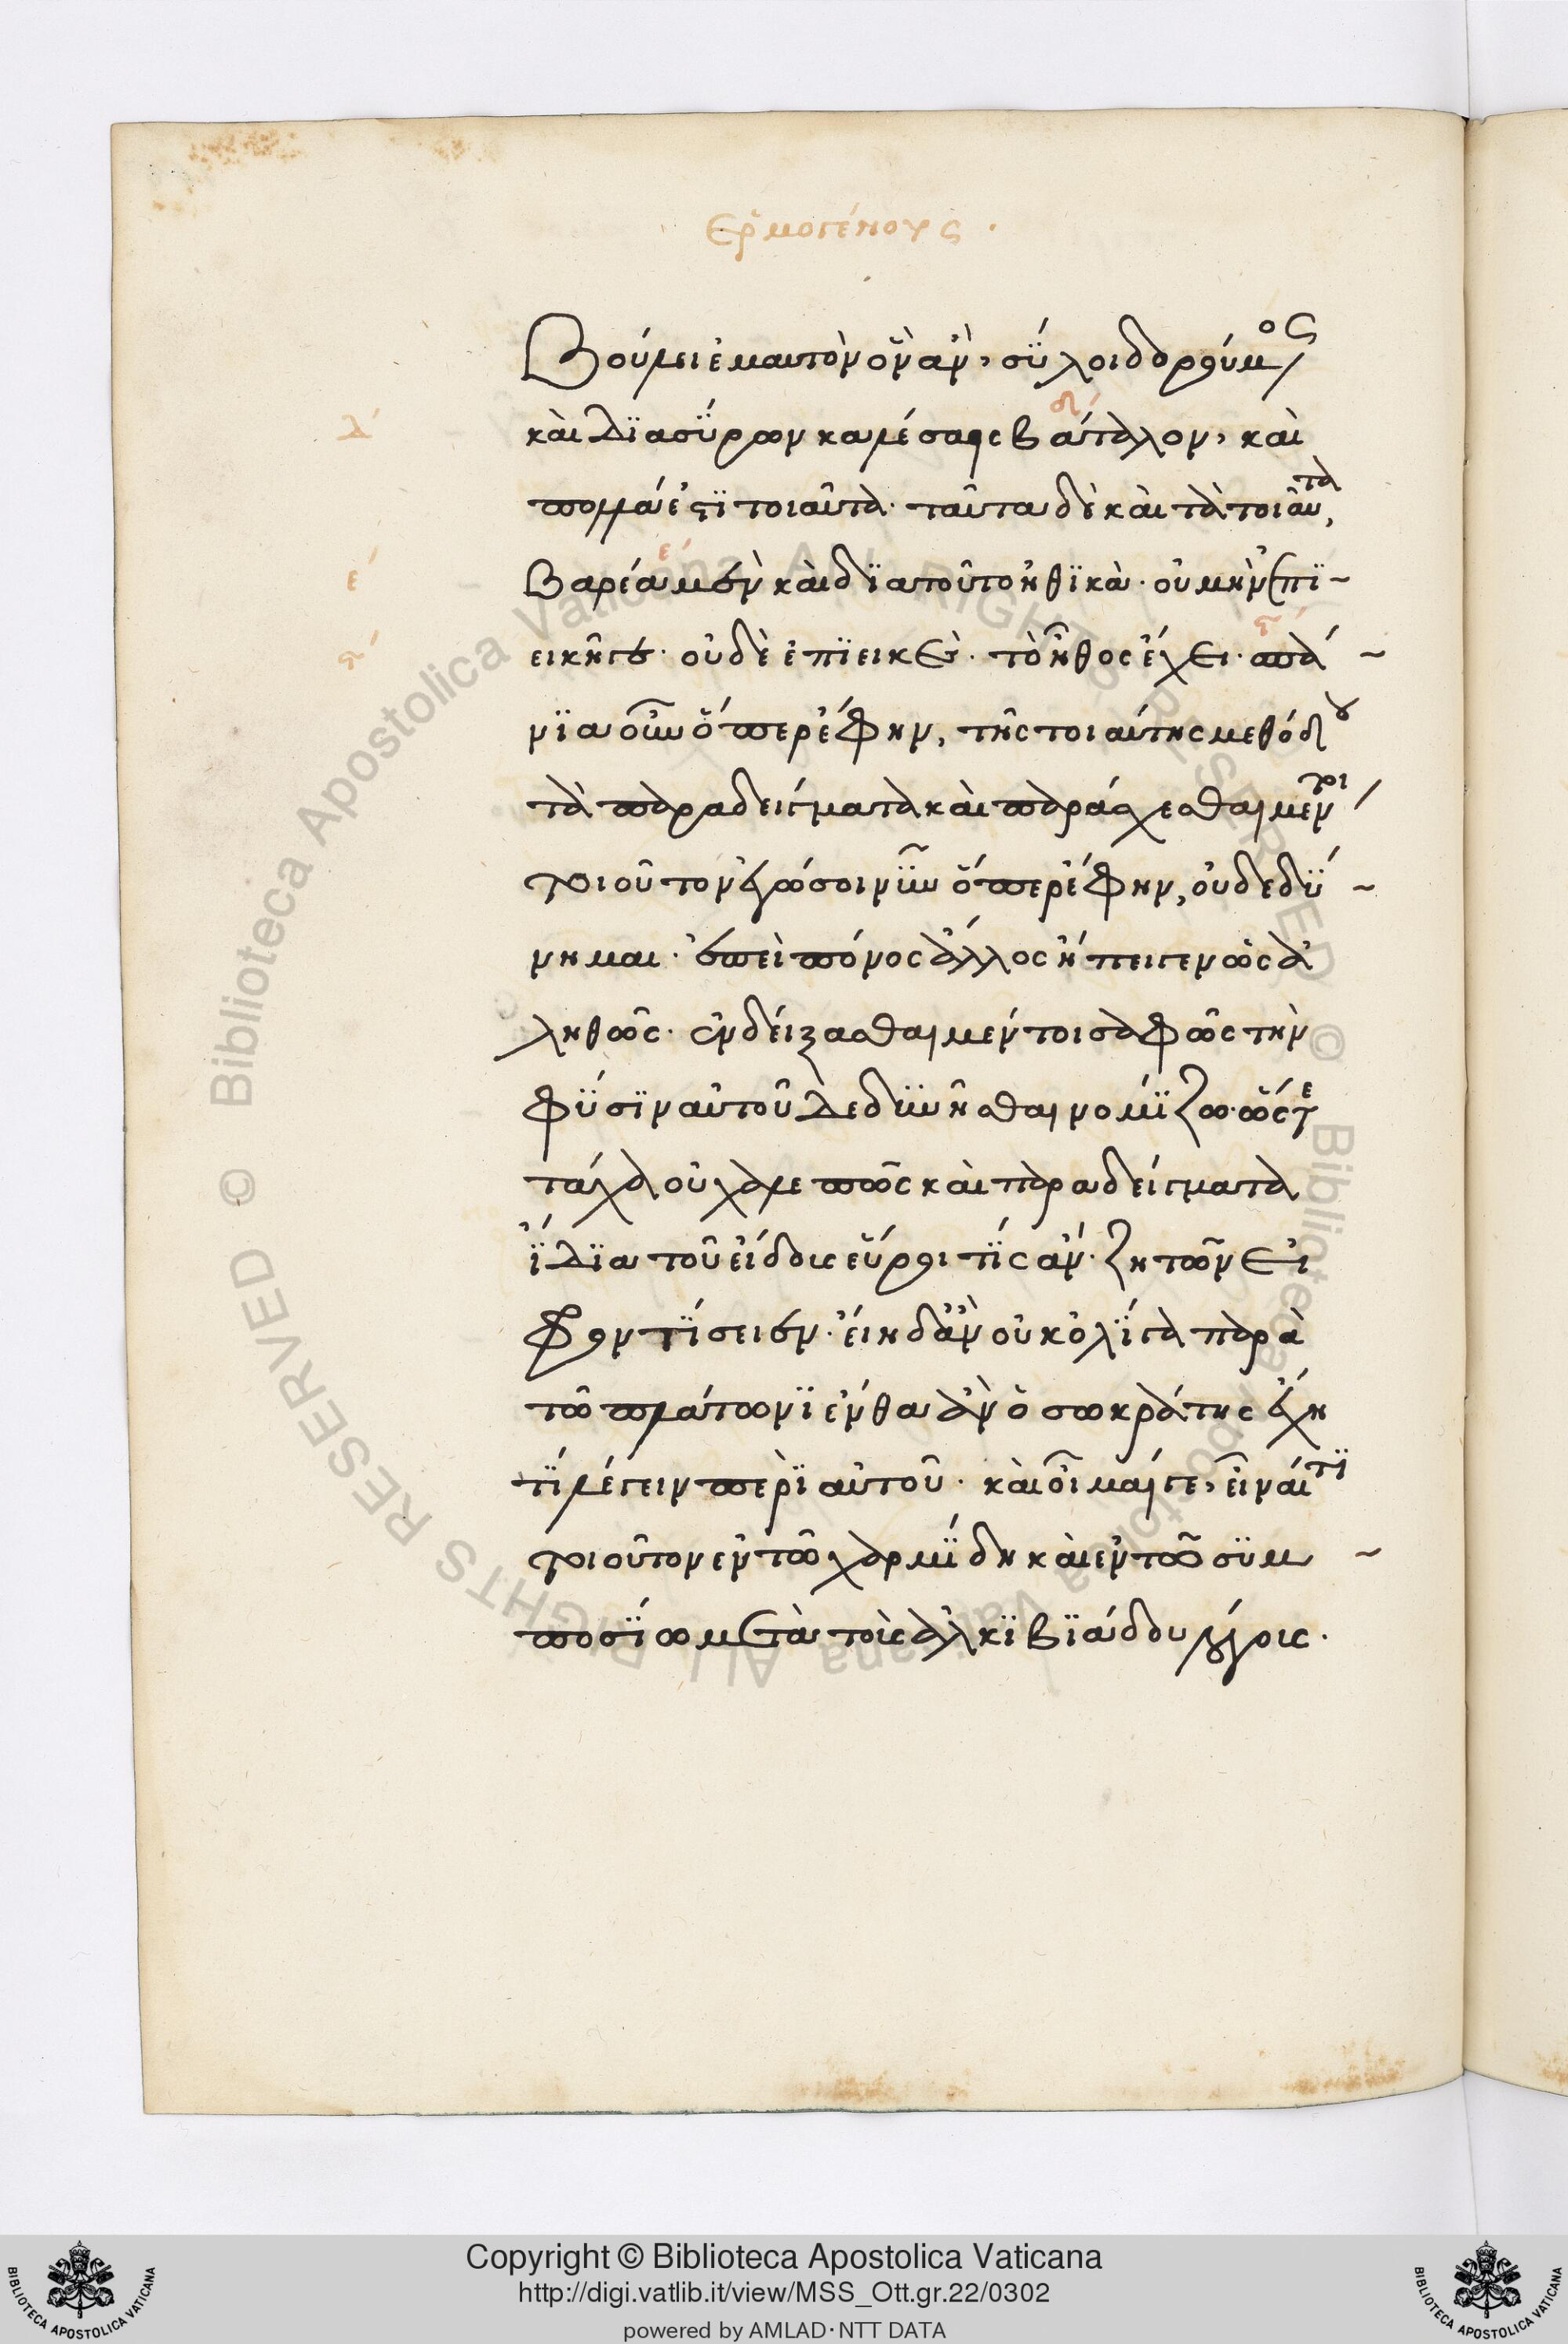 Ἑρμογένους.
Βούλει ἐμαυτὸν ὃν ἂν, σὺ λοιδορούμενος
δ´ καὶ διασύρων καλέσαις βάταλον, καὶ
πολλά ἐστι τοιαῦτα. ταῦτα δὲ καὶ τὰ τοιαῦτα,
ε´ βαρέα μὲν καὶ διατοῦτο ἠθικὰ. οὐ μὴν ἐπι~
ϛ´ εικῆ γε. οὐδὲ ἐπιεικὲς. τὸ ἦθος ἔχει. σπά~
νια οὖν ὅπερ ἔφην, τῆς τοιαύτης μεθόδου
τὰ παραδείγματα καὶ παράσχεσθαι μέντοι
τοιοῦτον ἐγώ σοι νῦν ὅπερ ἔφην, οὐ δεδύ~
νημαι. ἐπεὶ πόνος ἄλλος ἤπειγεν ὡς ἀ
ληθῶς. ἐνδείξασθαι μέντοι σαφῶς τὴν
φύσιν αὐτοῦ δεδυνῆσθαι νομίζω. ὥστε
τάχα οὐ χαλεπῶς καὶ παραδείγματα
ἴδια τοῦ εἴδους εὕροι τίς ἄν. ζητῶν εἰ
φροντίσειεν. εἴη δ' ἂν οὐκ ὀλίγα παρὰ
τῶ πλάτωνι ἔνθα ἂν ὁ σωκράτης ἔχη
τί λέγειν περὶ αὐτοῦ. καὶ οἶμαί γε, εἶναί τι
τοιοῦτον ἐν τῶ χαρμίδη καὶ ἐν τῶ συμ~
ποσίω μετὰ τοὺς ἀλκιβιάδου λόγους.
Copyright © Biblioteca Apostolica Vaticana
http://digi.vatlib.it/view/MSS_Ott.gr.22/0302
powered by AMLAD·NTT DATA